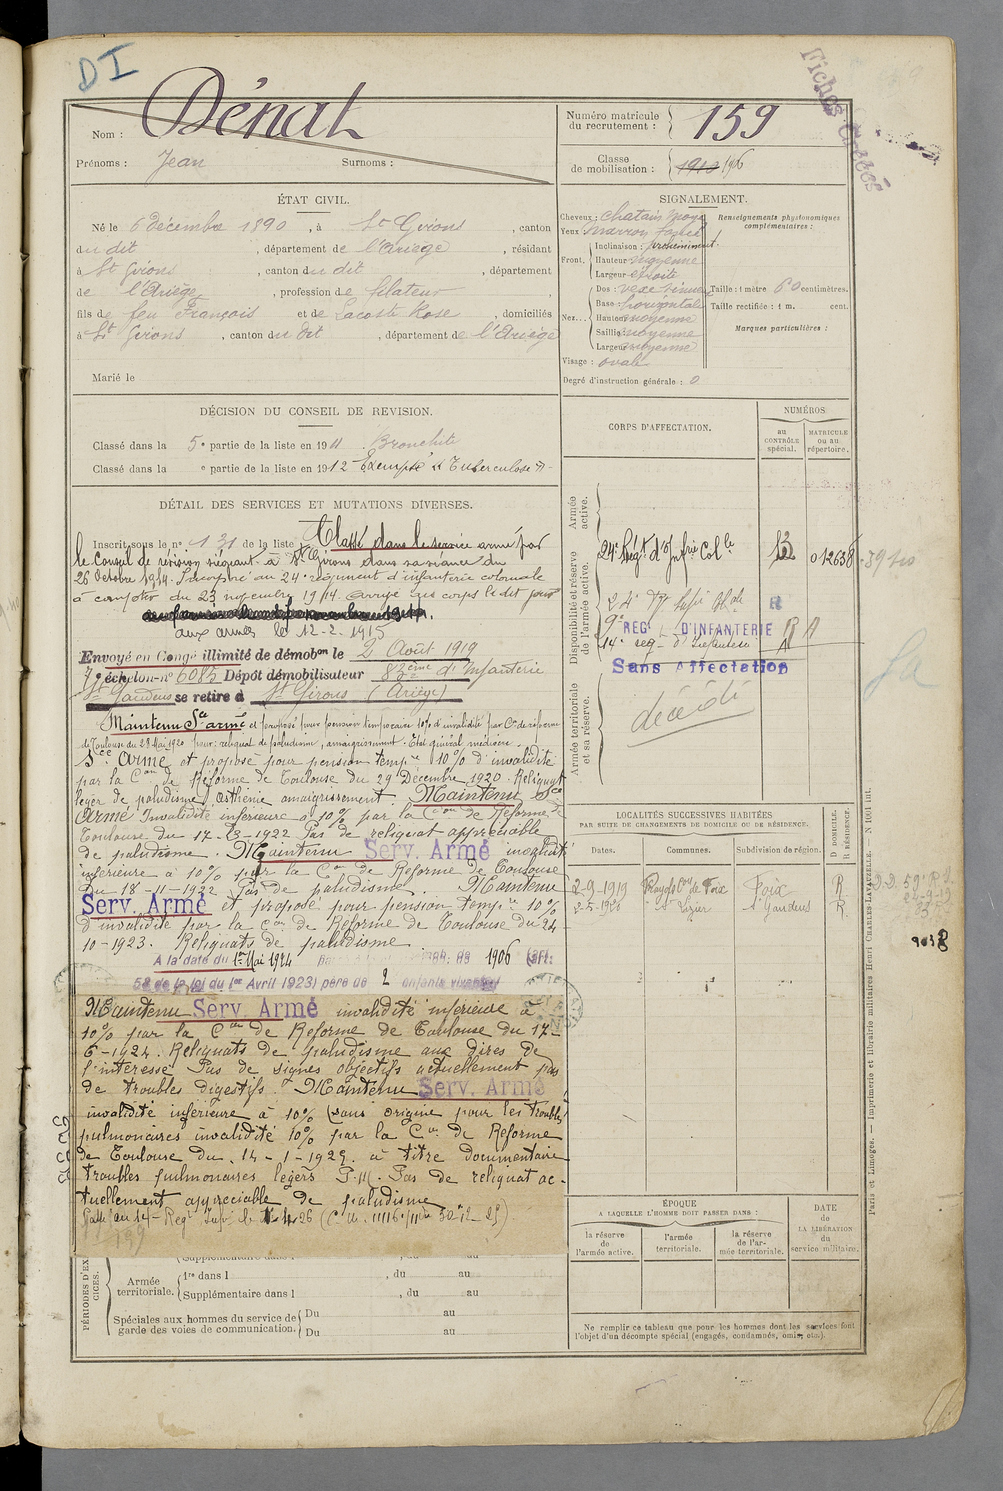 DI
Fiches Créées
Nom : Dénat
Prénoms : Jean Surnoms :
Numéro matricule
du recrutement : 159
Classe
de mobilisation : 1910 1906
ÉTAT CIVIL.
Né le 6 décembre 1890, à St Girons, canton
du dit, département de l'Ariège, résidant
à St Girons, canton du dit, département
de l'Ariège, profession de filateur
fils de feu François et de Lacoste Rose, domiciliés
à St Girons, canton du dit, département de l'Ariège
Marié le
SIGNALEMENT.
Cheveux : chatain moyen
Yeux marron foncé
Front. Inclinaison : proéminent.
Hauteur moyenne
Largeur étroite
Nez... Dos :
Base : horizontale
Hauteur moyenne
Saillie : moyenne
Largeur moyenne
Visage : ovale
Degré d'instruction générale : 0
Renseignements physionomiques
complémentaires :
Taille : 1 mètre 60 centimètres.
Taille rectifiée : 1 m. cent.
Marques particulières :
DÉCISION DU CONSEIL DE REVISION.
Classé dans la 5e partie de la liste en 1911 Bronchite
Classé dans la e partie de la liste en 1912 Exempté "Tuberculose"
DÉTAIL DES SERVICES ET MUTATIONS DIVERSES.
Inscrit sous le n° 131 de la liste Classé dans le service armé par
le Conseil de révision siégeant à St Girons dans sa séance du
26 Octobre 1914. Incorporé au 24e régiment d'infanterie coloniale
à compter du 23 novembre 1914. Arrivé au corps le dit jour
aux armées le 12-2-1915
Envoyé en Congé illimité de démobon le 2 Août 1919
7e échelon-n° 6085 Dépôt démobilisateur 83ème d'Infanterie
St Gaudens se retire à St Girons (Ariège)
Maintenu Sce armé et proposé pour pension temporaire 10% d'invalidité par Con de réforme
de Toulouse du 28 Mai 1920 pour : reliquat de paludisme, amaigrissement. Etat général médiocre.
Sce armé et proposé pour pension tempre 10% d'invalidité
par la Con de Réforme de Toulouse du 29 Décembre 1920. Reliquat
léger de paludisme, asthénie amaigrissement. Maintenu Sce
armé Invalidité inférieure à 10% par la Con de Réforme de
Toulouse du 17-3-1922 Pas de reliquat appréciable
de paludisme. Maintenu Serv. Armé invalidité
inférieure à 10% par la Con de Réforme de Toulouse
du 18-11-1922 Pas de paludisme. Maintenu
Serv. Armé et proposé pour pension tempre 10%
d'invalidité par la Con de Réforme de Toulouse du 24-
10-1923. Reliquats de paludisme
A la date du 1er Mai 1924 1906 (art.
58 de la loi du 1er Avril 1923) père de 2 enfants vivants
Maintenu Serv. Armé invalidité inférieure à
10% par la Con de Réforme de Toulouse du 17-
6-1924. Reliquats de paludisme aux dires de
l'intéressé Pas de signes objectifs actuellement pas
de troubles digestifs. Maintenu Serv. Armé,
invalidité inférieure à 10% sans origine pour les troubles
pulmonaires invalidité 10% par la Con de Réforme
de Toulouse du 14-1-1925. à titre documentaire
troubles pulmonaires légers P.M. Pas de reliquat ac-
tuellement appréciable de paludisme
CORPS D'AFFECTATION.
NUMÉROS
au
CONTRÔLE
spécial.
MATRICULE
ou au
répertoire.
Armée
active.
24e Régt d'Infrie Colle 012638
Disponibilité et réserve
de l'armée active.
9e REGt D'INFANTERIE R A
14e reg d'Infanterie A
Sans Affectation
Armée territoriale
et sa réserve.
décédé
LOCALITÉS SUCCESSIVES HABITÉES
PAR SUITE DE CHANGEMENTS DE DOMICILE OU DE RÉSIDENCE.
Dates. Communes. Subdivision de région. D DOMICILE. R RÉSIDENCE.
2-9-1919 Foix R
2-5-1920 St Gaudens R
9038
ÉPOQUE
A LAQUELLE L'HOMME DOIT PASSER DANS :
la réserve
de
l'armée active.
l'armée
territoriale.
la réserve
de l'ar-
mée territoriale.
DATE
de
LA LIBÉRATION
du
service militaire.
Ne remplir ce tableau que pour les hommes dont les services font
l'objet d'un décompte spécial (engagés, condamnés, omis, etc.).
Supplémentaire dans l , du au
Armée
territoriale. 1re dans l , du au
Supplémentaire dans l , du au
Spéciales aux hommes du service de
garde des voies de communication. Du au
Du au
Paris et Limoges. — Imprimerie et librairie militaires Henri CHARLES-LAVAUZELLE. — N° 1001 int.